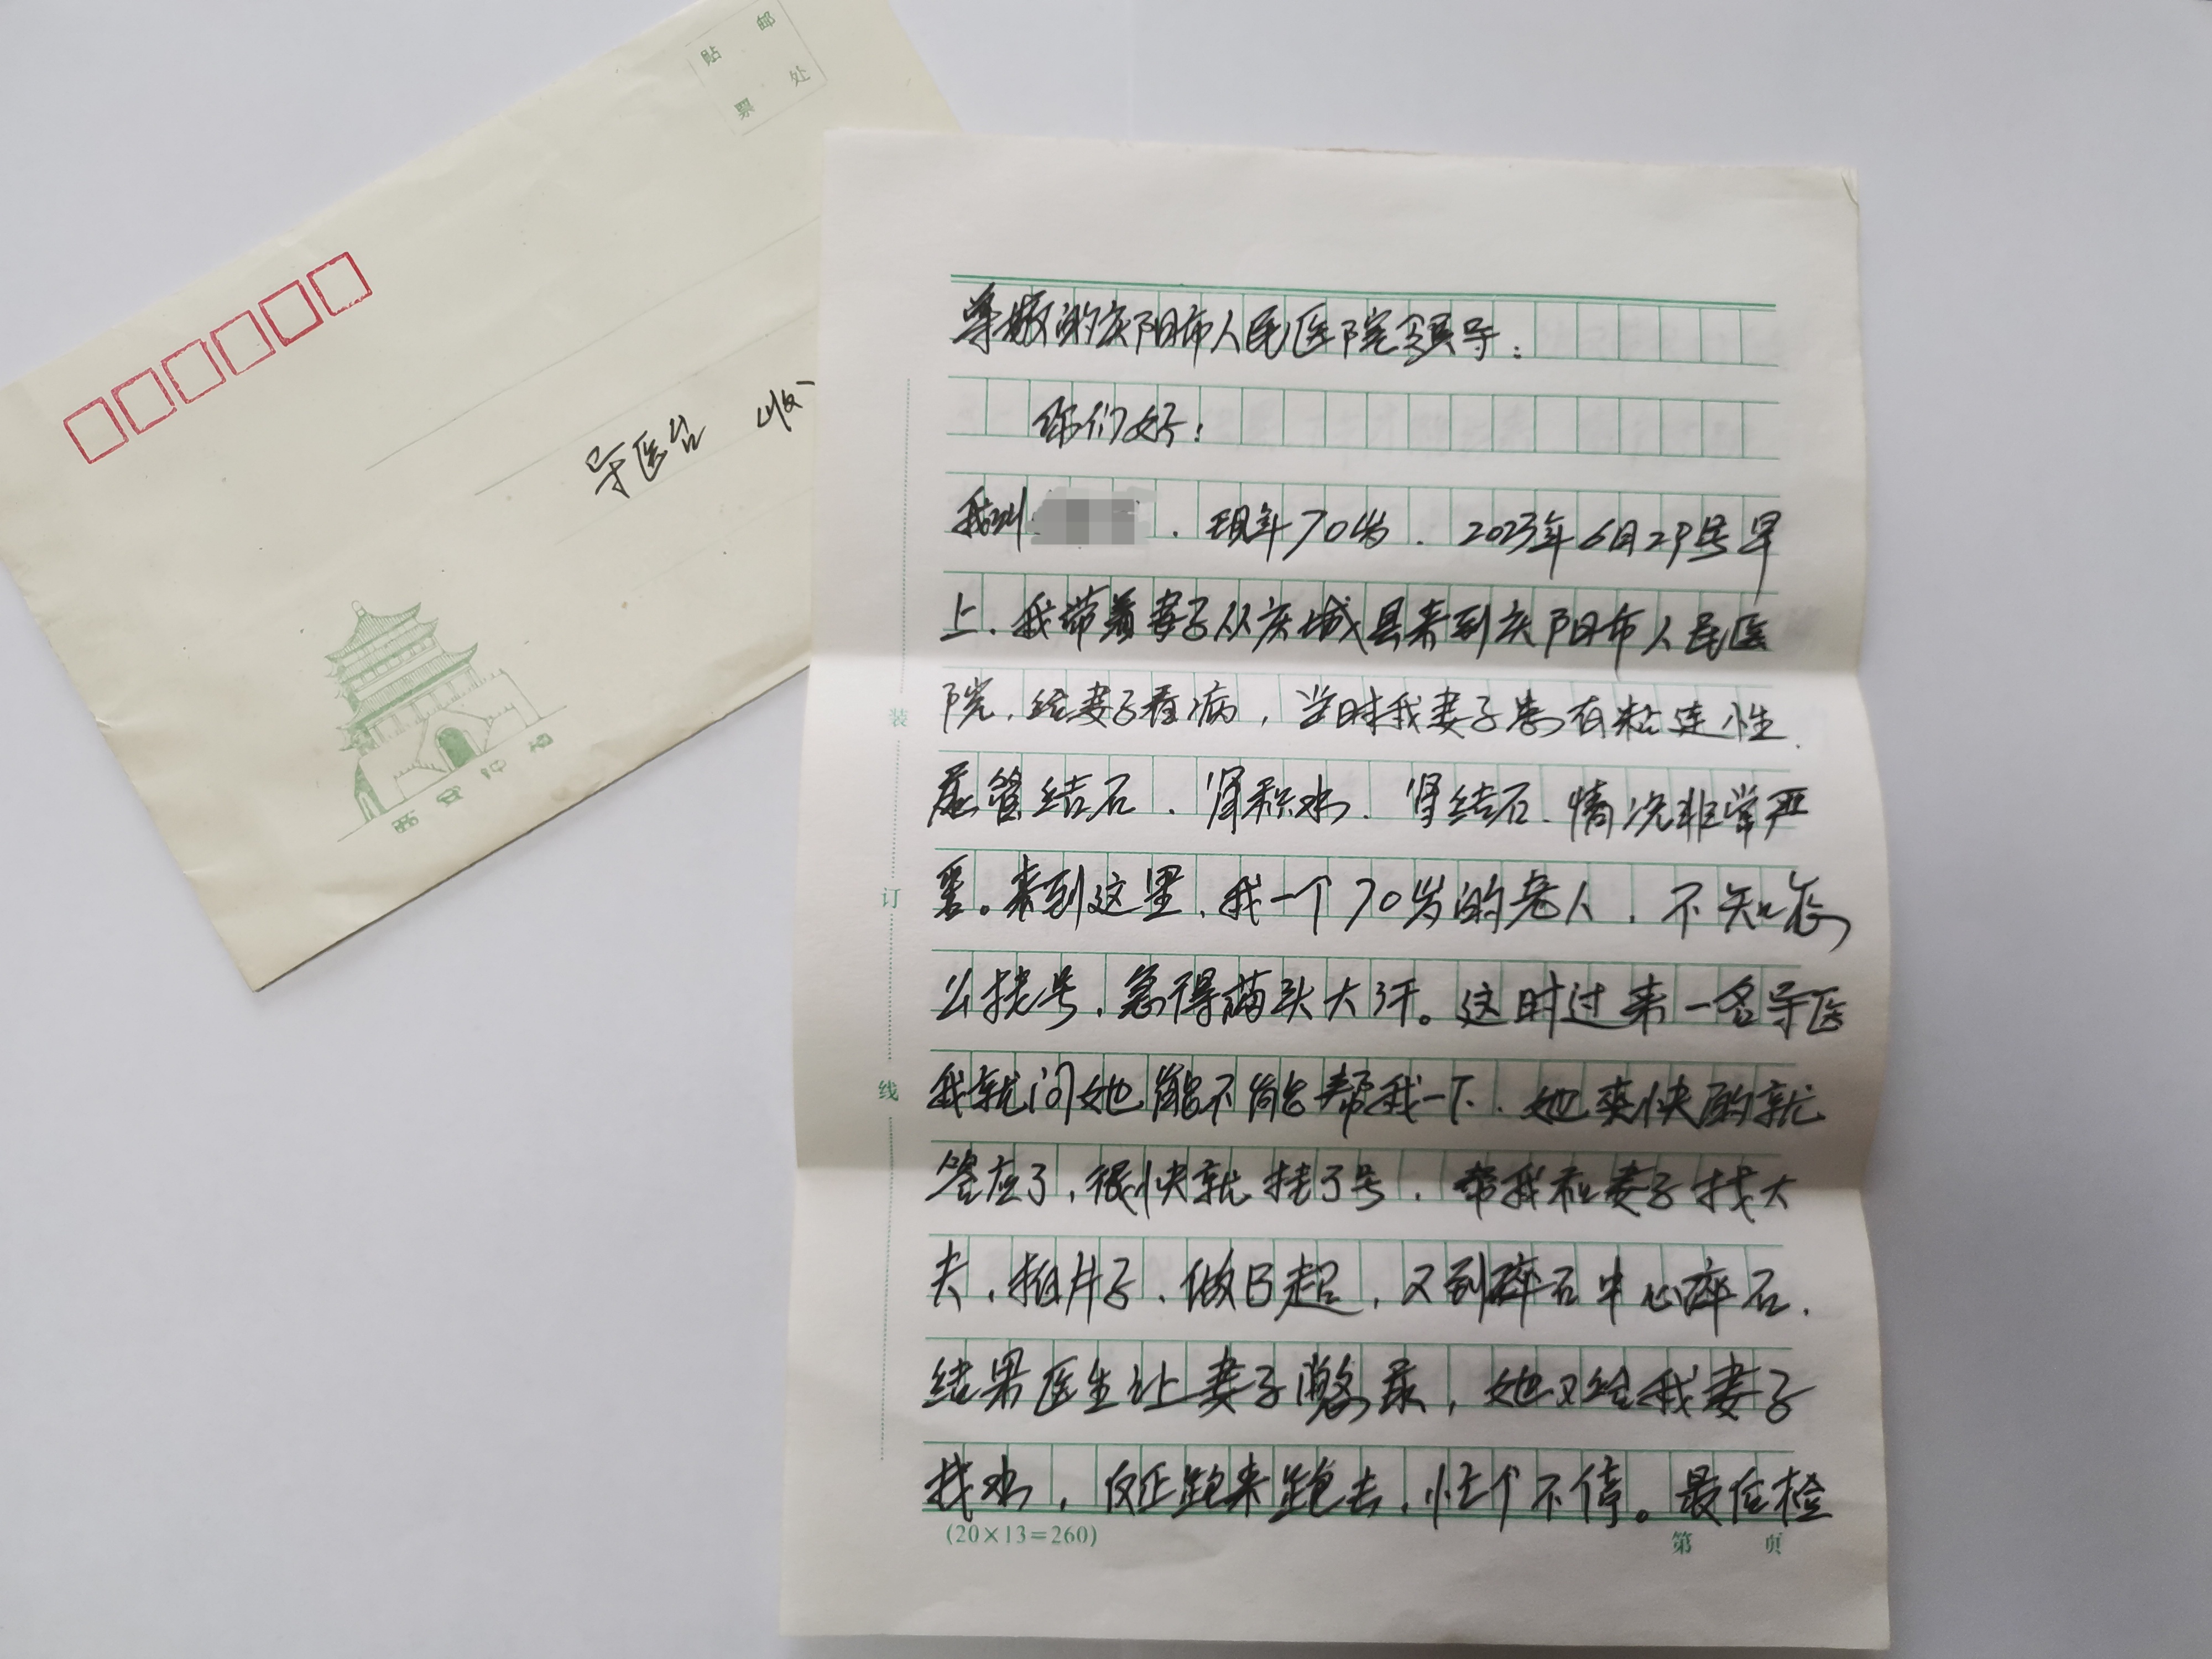 贴 邮
票 处
导医台 收
西安钟楼
尊敬的庆阳市人民医院领导:
你们好:
我叫 . 现年70岁. 2023年6月29号早
上.我带着妻子从庆城县来到庆阳市人民医
院.给妻子看病,当时我妻子患有粘连性.
尿管结石.肾积水.肾结石.情况非常严
重。来到这里.我一个70岁的老人.不知怎
么挂号.急得满头大汗。这时过来一名导医
我就问她能不能帮我一下.她爽快的就
答应了.很快就挂了号.帮我和妻子找大
夫.拍片子.做B超.又到碎石中心碎石.
结果医生让妻子憋尿,她又给我妻子
找水,反正跑来跑去.忙个不停。最后检
装
订
线
(20×13=260)
第 页